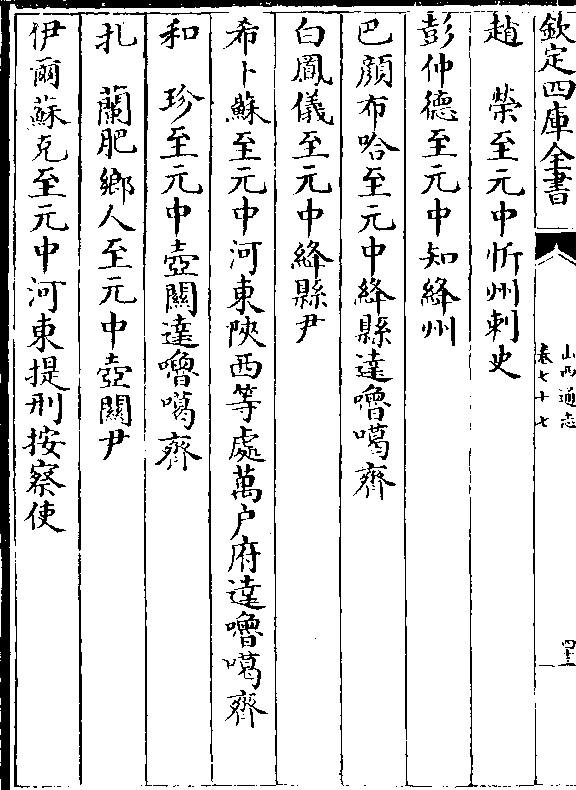 欽定四庫全書
山西通志
卷七十七
趙　榮至元中忻州刺史
彭仲德至元中知絳州
巴顔布哈至元中絳縣達嚕噶齊
白鳳儀至元中絳縣尹
希卜蘇至元中河東陜西等處萬户府達嚕噶齊
和　珍至元中壺關達嚕噶齊
扎　蘭肥鄉人至元中壺關尹
伊爾蘇克至元中河東提刑按察使